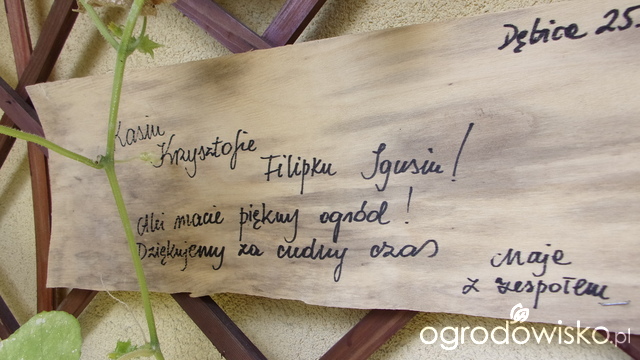 Dębica 25.
Kasiu
Krzysztofie
Filipku Igusiu!
Ale macie piękny ogród!
Dziękujemy za cudny czas
Maja
z zespołem
ogrodowisko.pl